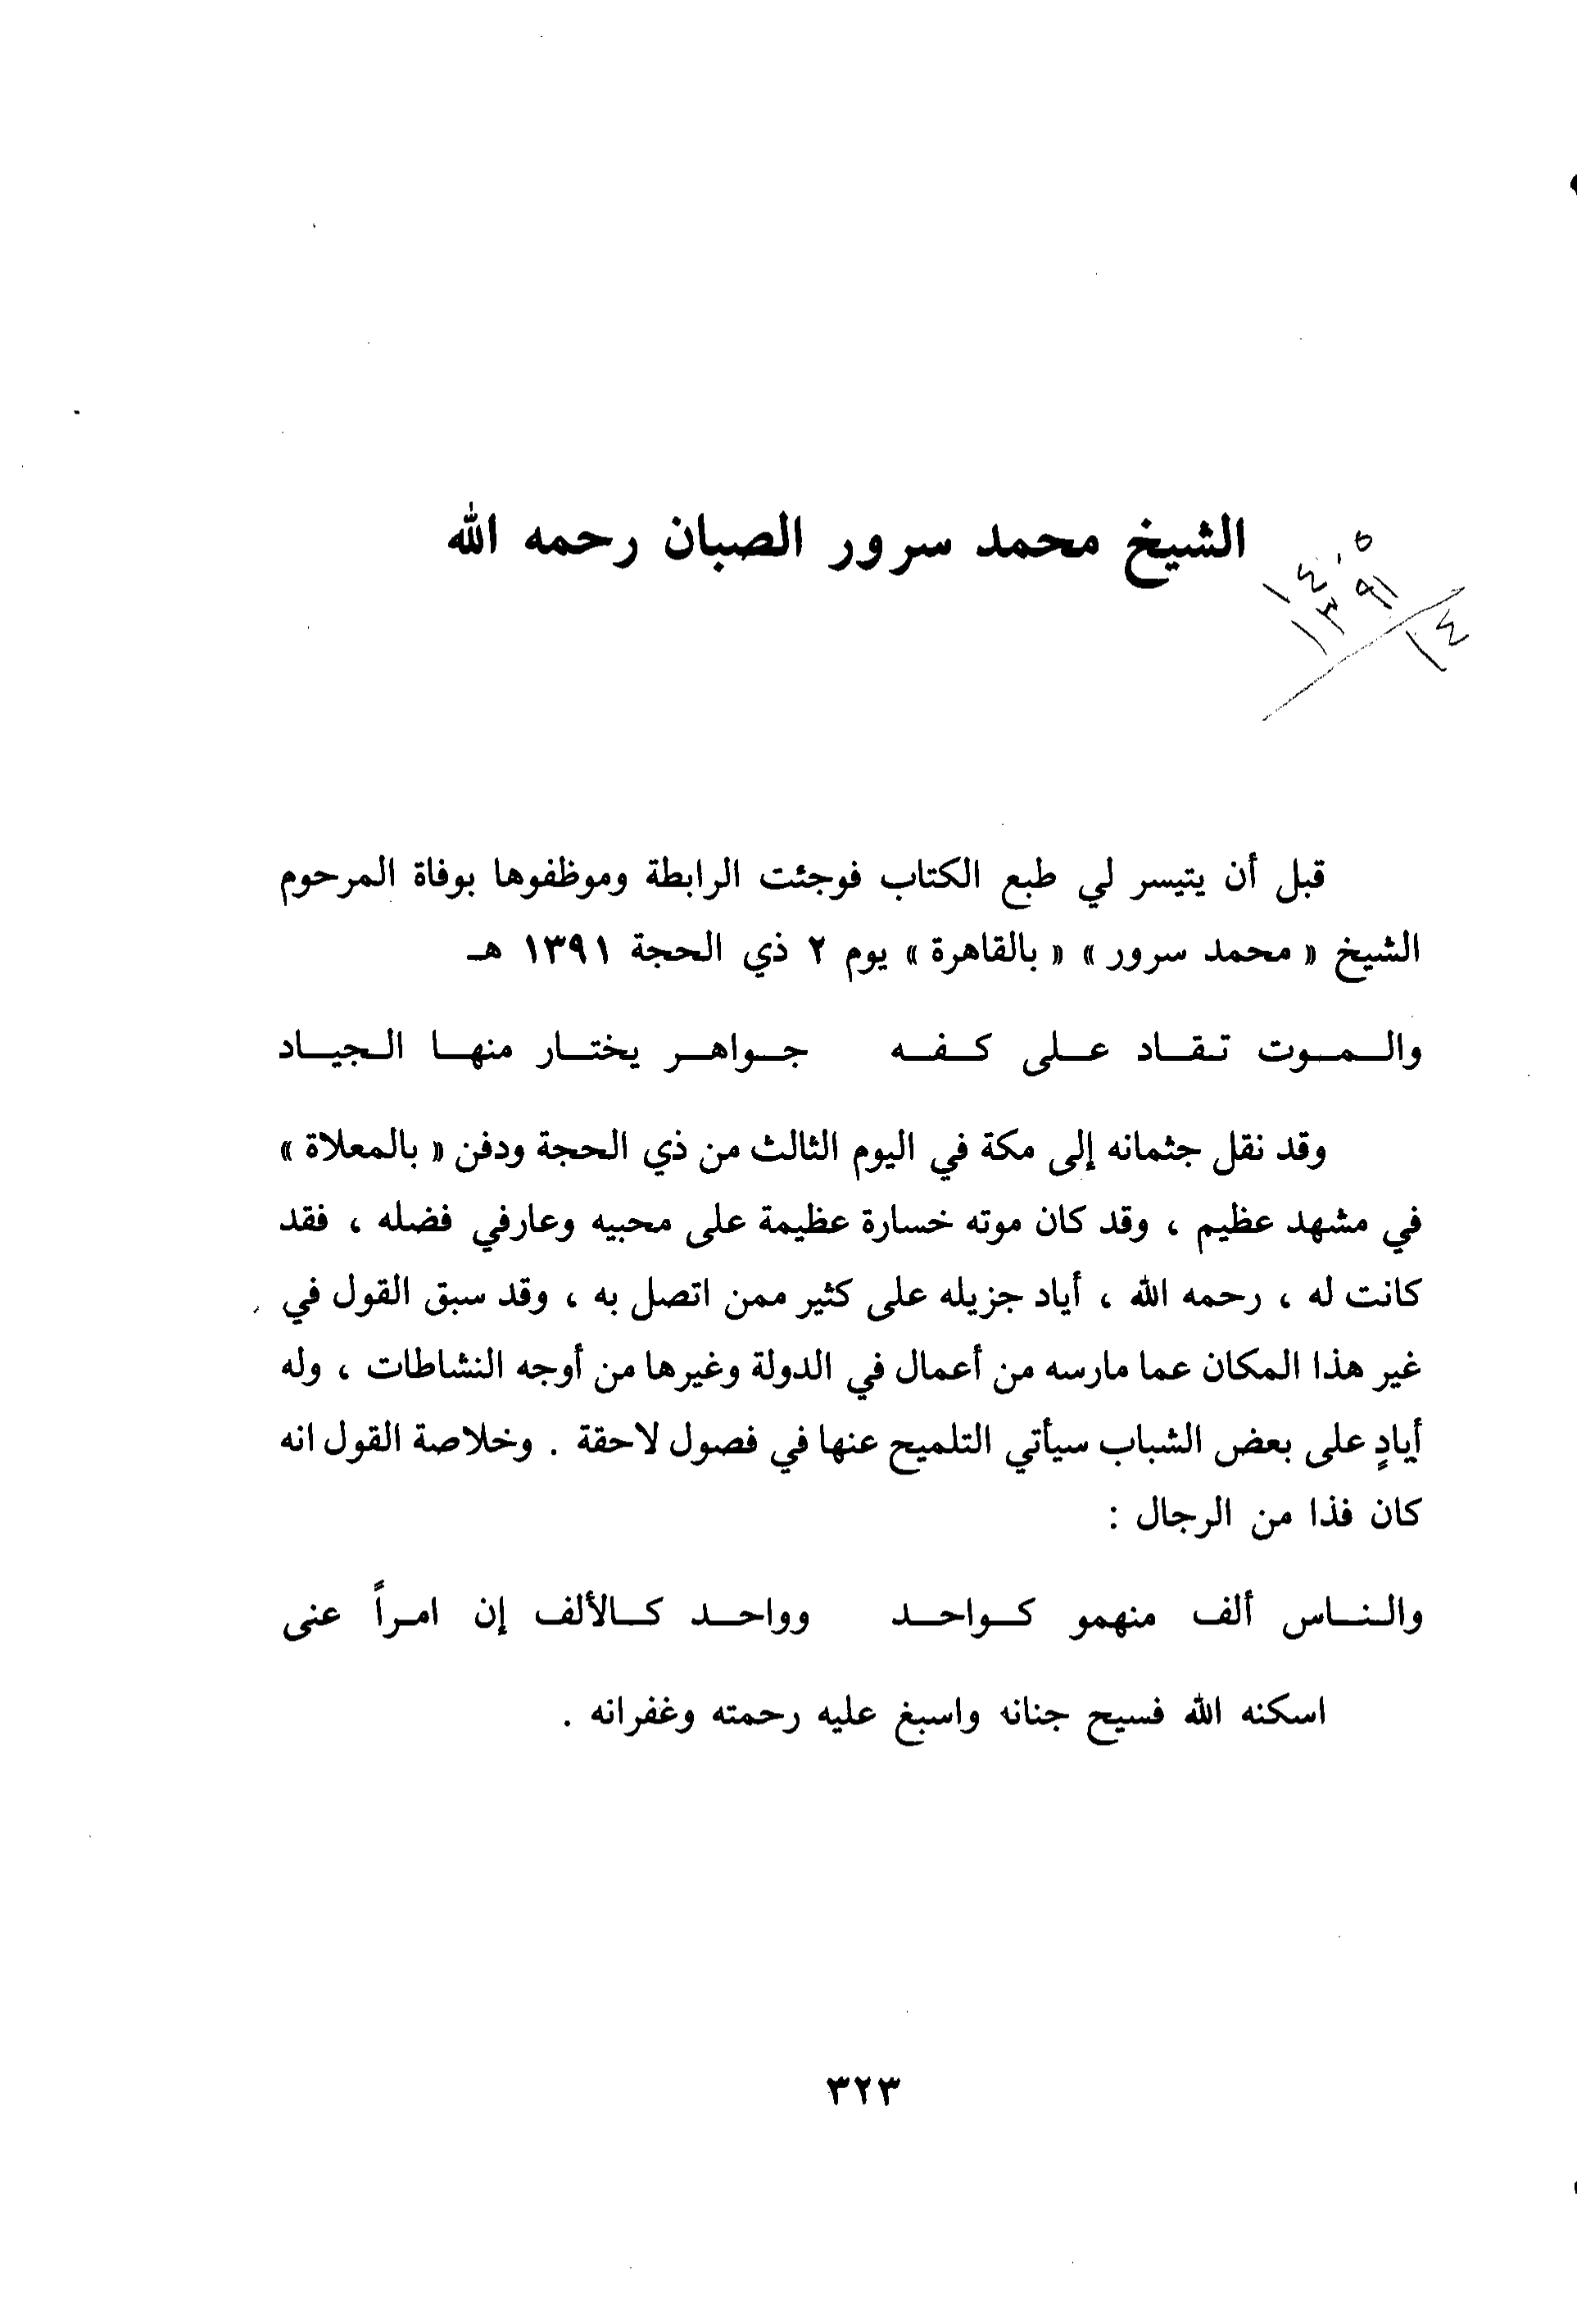 الشيخ محمد سرور الصبان رحمه الله
١٤٠٥
١٣٩١
١٤
قبل أن يتيسر لي طبع الكتاب فوجئت الرابطة وموظفوها بوفاة المرحوم
الشيخ « محمد سرور » « بالقاهرة » يوم ٢ ذي الحجة ١٣٩١ هـ
والـمـوت تـقـاد عـلى كـفـه جـواهـر يختـار منهـا الـجيـاد
وقد نقل جثمانه إلى مكة في اليوم الثالث من ذي الحجة ودفن « بالمعلاة »
في مشهد عظيم ، وقد كان موته خسارة عظيمة على محبيه وعارفي فضله ، فقد
كانت له ، رحمه الله ، أياد جزيله على كثير ممن اتصل به ، وقد سبق القول في
غير هذا المكان عما مارسه من أعمال في الدولة وغيرها من أوجه النشاطات ، وله
أيادٍ على بعض الشباب سيأتي التلميح عنها في فصول لاحقة . وخلاصة القول انه
كان فذا من الرجال :
والـنـاس ألف منهمو كـواحـد وواحـد كـالألف إن امـرأً عنى
اسكنه الله فسيح جنانه واسبغ عليه رحمته وغفرانه .
٣٢٣